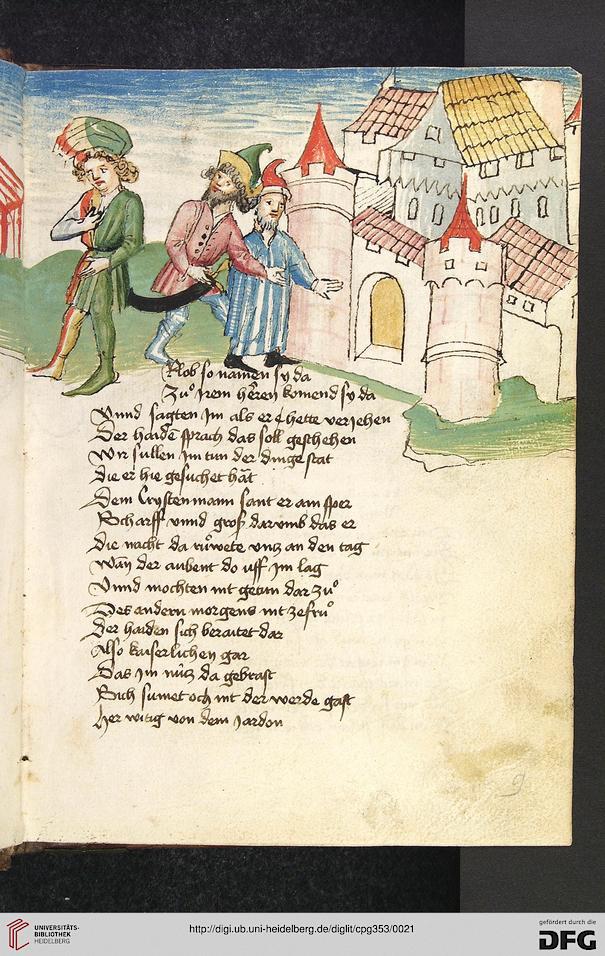 Vrlob so namen sy da
Zů Irem heren komend sy da
Vnnd sagten Im als er hette veriehen
Der haiden sprach das soll geschehen
Wir sullen Im tun der dinge stat
die er hie gesuchet hat
Dem Crystenmann sant er am sper
Scharff vnnd groß darumb das er
die nacht da růwete vnz an den tag
wan der aubent do uff Im lag
Vnnd mochten nit getun dar zů
Des andern morgens nit ze frů
Der haiden sich beraitet dar
Also kaiserlichen gar
Das Im nütz da gebrast
Sich sumet och nit der werde gast
her witig von dem Jordon
9
UNIVERSITÄTS-
BIBLIOTHEK
HEIDELBERG
http://digi.ub.uni-heidelberg.de/diglit/cpg353/0021
gefördert durch die
DFG